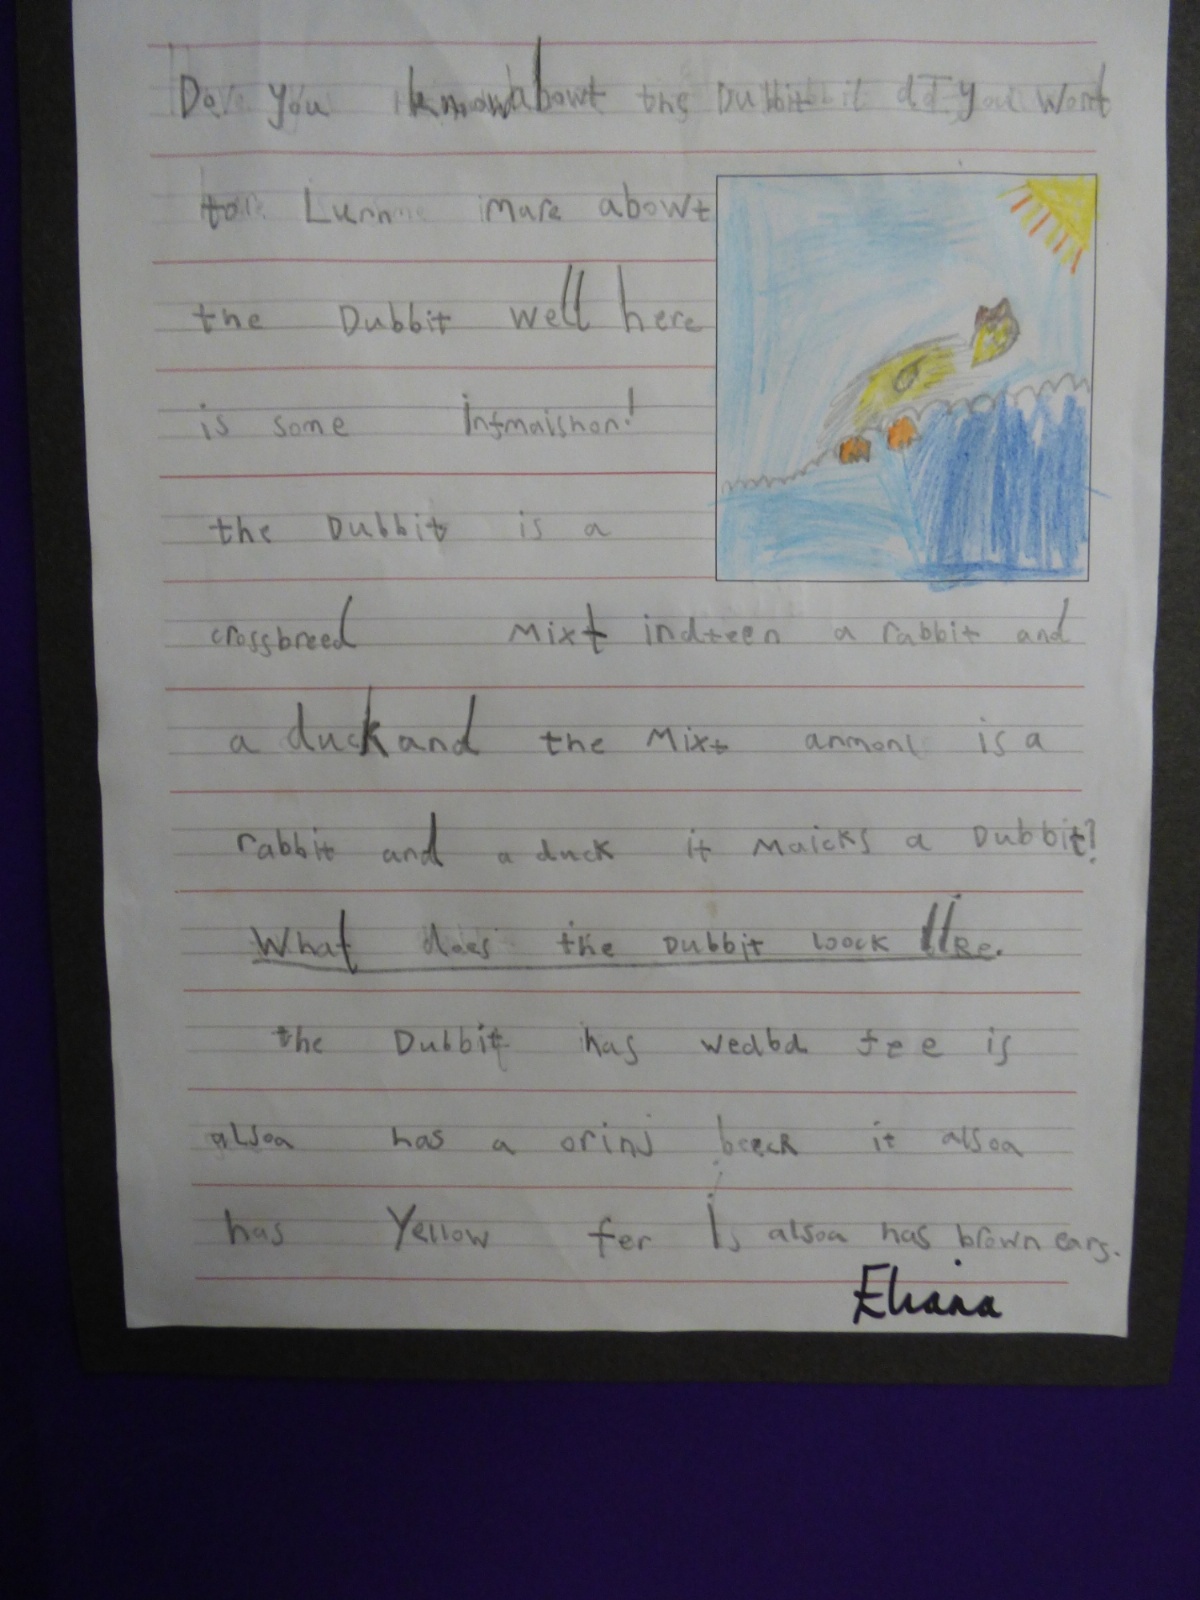 Do you know abowt the Dubbit dd you wont
to Lurn mare abowt
the Dubbit well here
is some infmaishon!
the Dubbit is a
crossbreed Mixt indteen a rabbit and
a duck and the Mixt anmonl is a
rabbit and a duck it maicks a Dubbit!
What does the Dubbit loock like.
the Dubbit has wedbd fee is
alsoa has a orinj beeck it alsoa
has Yellow fer is alsoa has brown ears.
Eliana